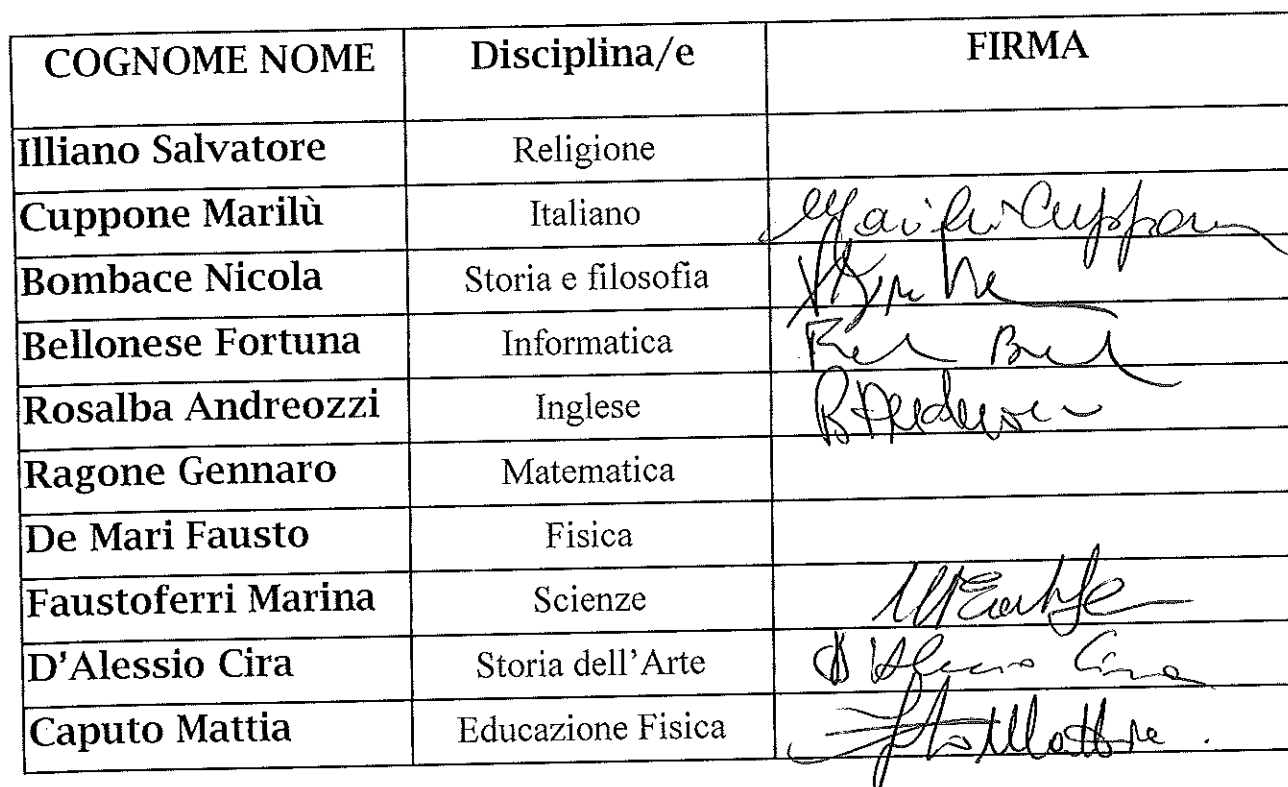 COGNOME NOME Disciplina/e FIRMA
Illiano Salvatore Religione
Cuppone Marilù Italiano Marilù Cuppone
Bombace Nicola Storia e filosofia
Bellonese Fortuna Informatica
Rosalba Andreozzi Inglese
Ragone Gennaro Matematica
De Mari Fausto Fisica
Faustoferri Marina Scienze
D'Alessio Cira Storia dell'Arte D'Alessio Cira
Caputo Mattia Educazione Fisica